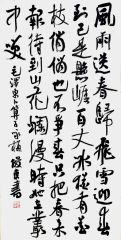 風雨送春歸飛雪迎春
到已是懸崖百丈冰猶有花
枝俏俏也不爭春只把春來
報待到山花爛漫時她在叢
中笑
毛澤東卜算子詠梅
書